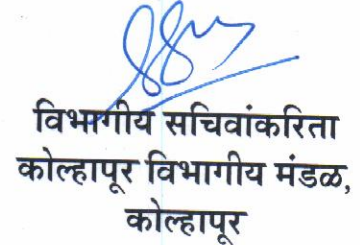 विभागीय सचिवांकरिता
कोल्हापूर विभागीय मंडळ,
कोल्हापूर